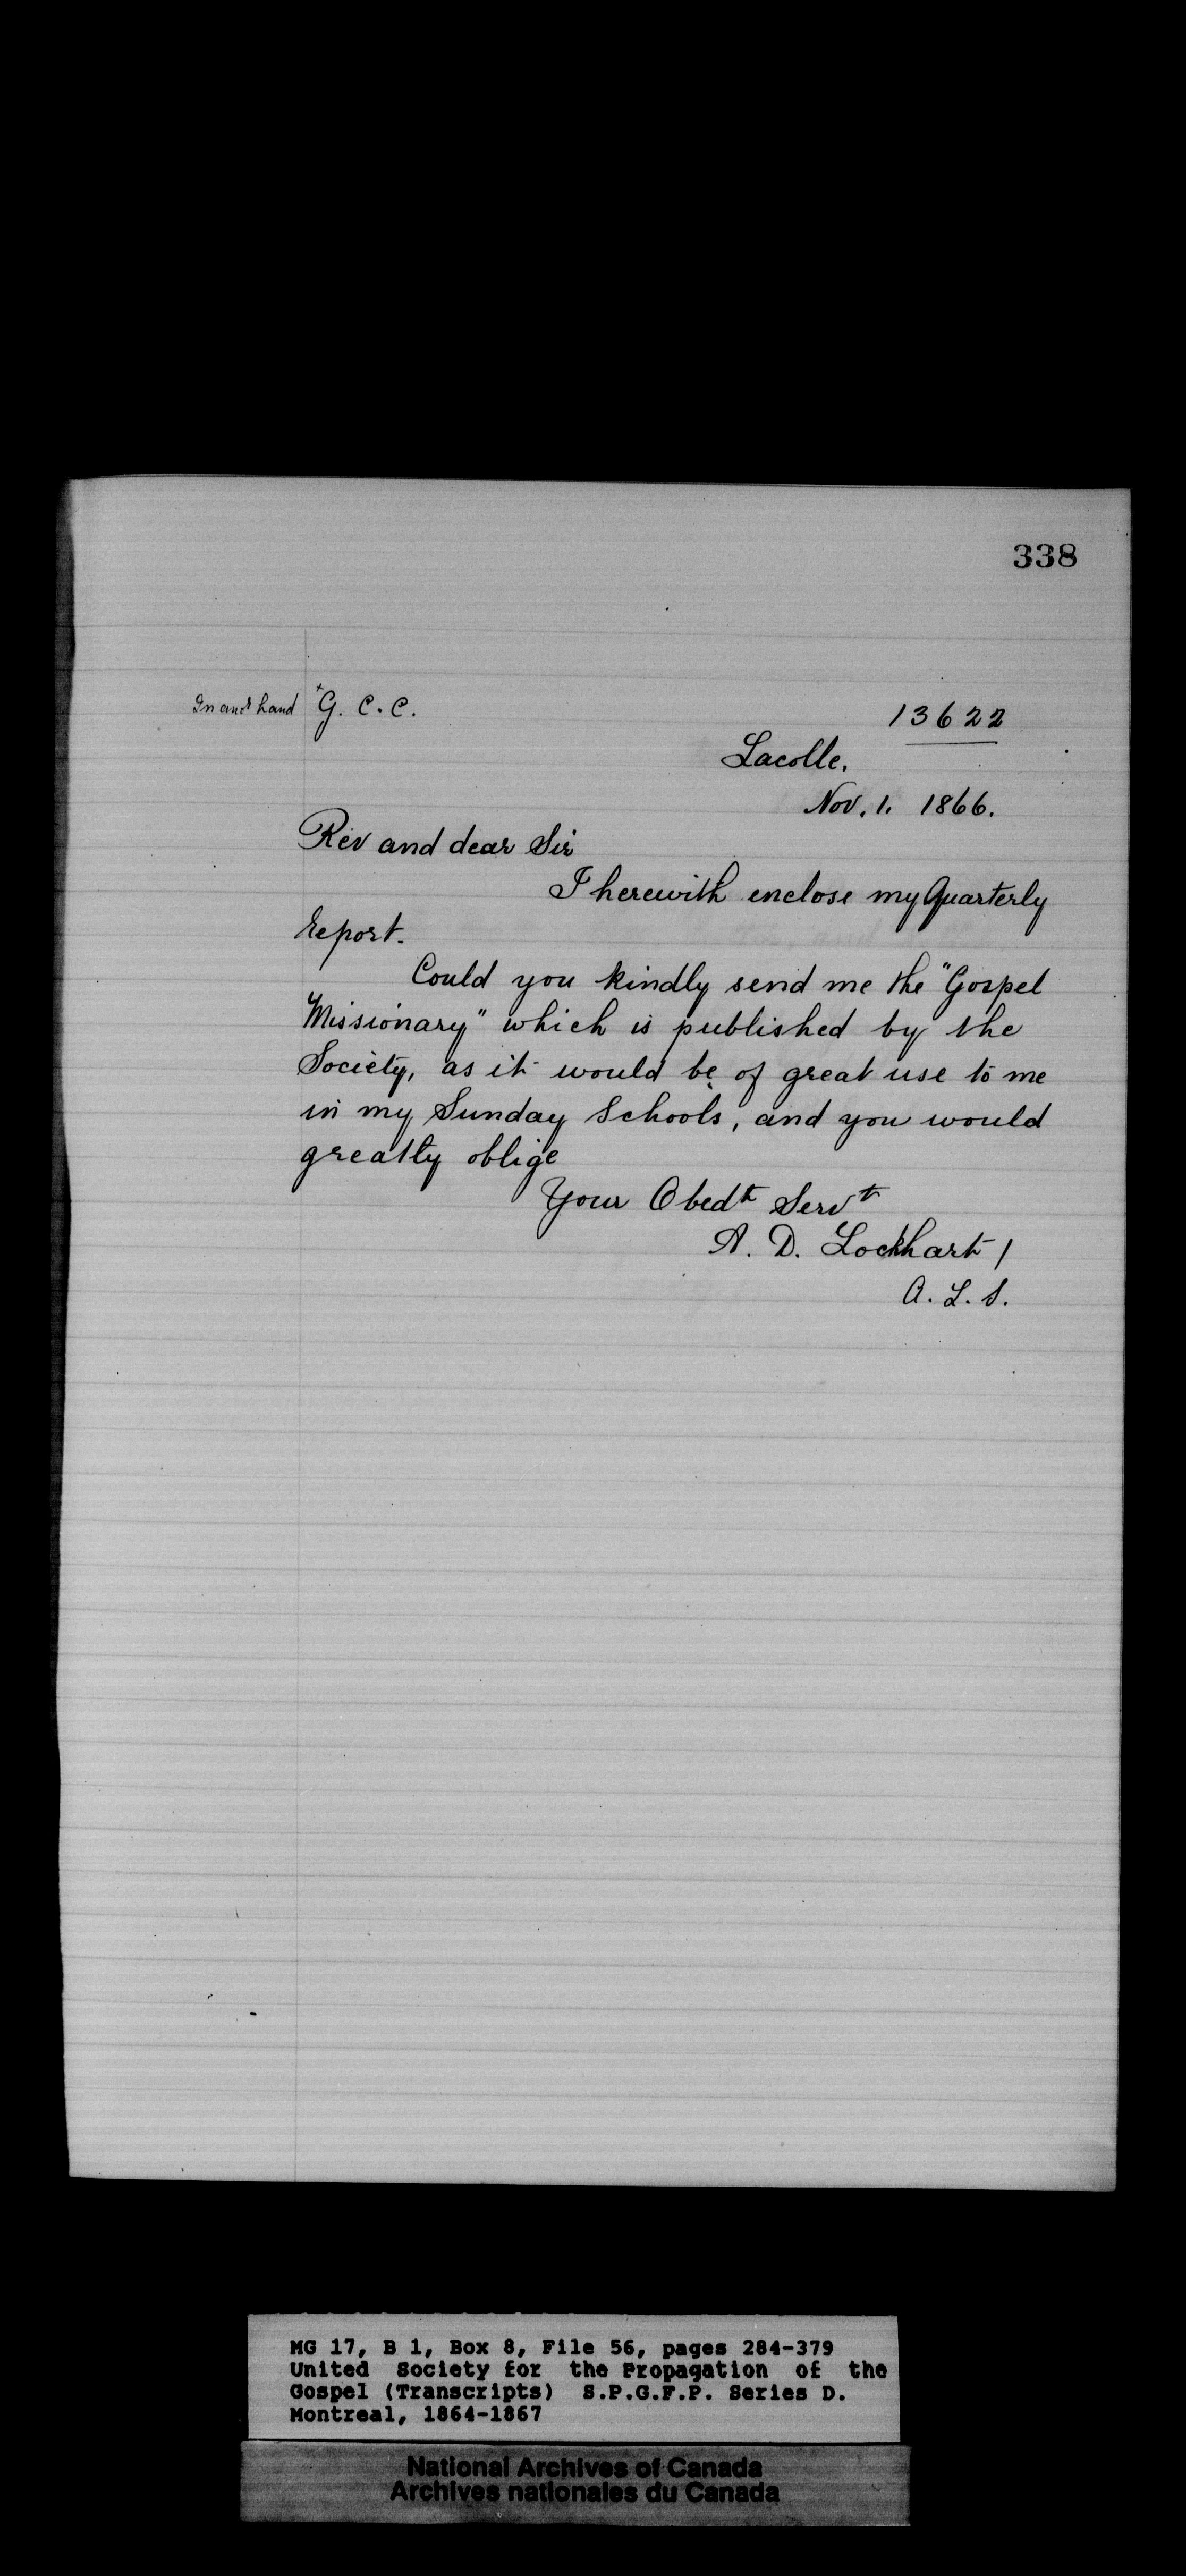 338
In anor hand + G. C. C.
13622
Lacolle.
Nov. 1. 1866.
Rev and dear Sir
I herewith enclose my Quarterly
report.
Could you kindly send me the "Gospel
Missionary" which is published by the
Society, as it would be of great use to me
in my Sunday Schools, and you would
greatly oblige
Your Obedt Servt
A. D. Lockhart /
A. L. S.
MG 17, B 1, Box 8, File 56, pages 284-379
United Society for the Propagation of the
Gospel (Transcripts) S.P.G.F.P. Series D.
Montreal, 1864-1867
National Archives of Canada
Archives nationales du Canada